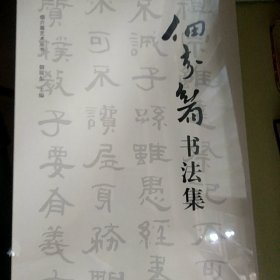 佃介眉
书法集
不誠子孫雖愚經書
不可不讀居身務期
質樸教子要有義方